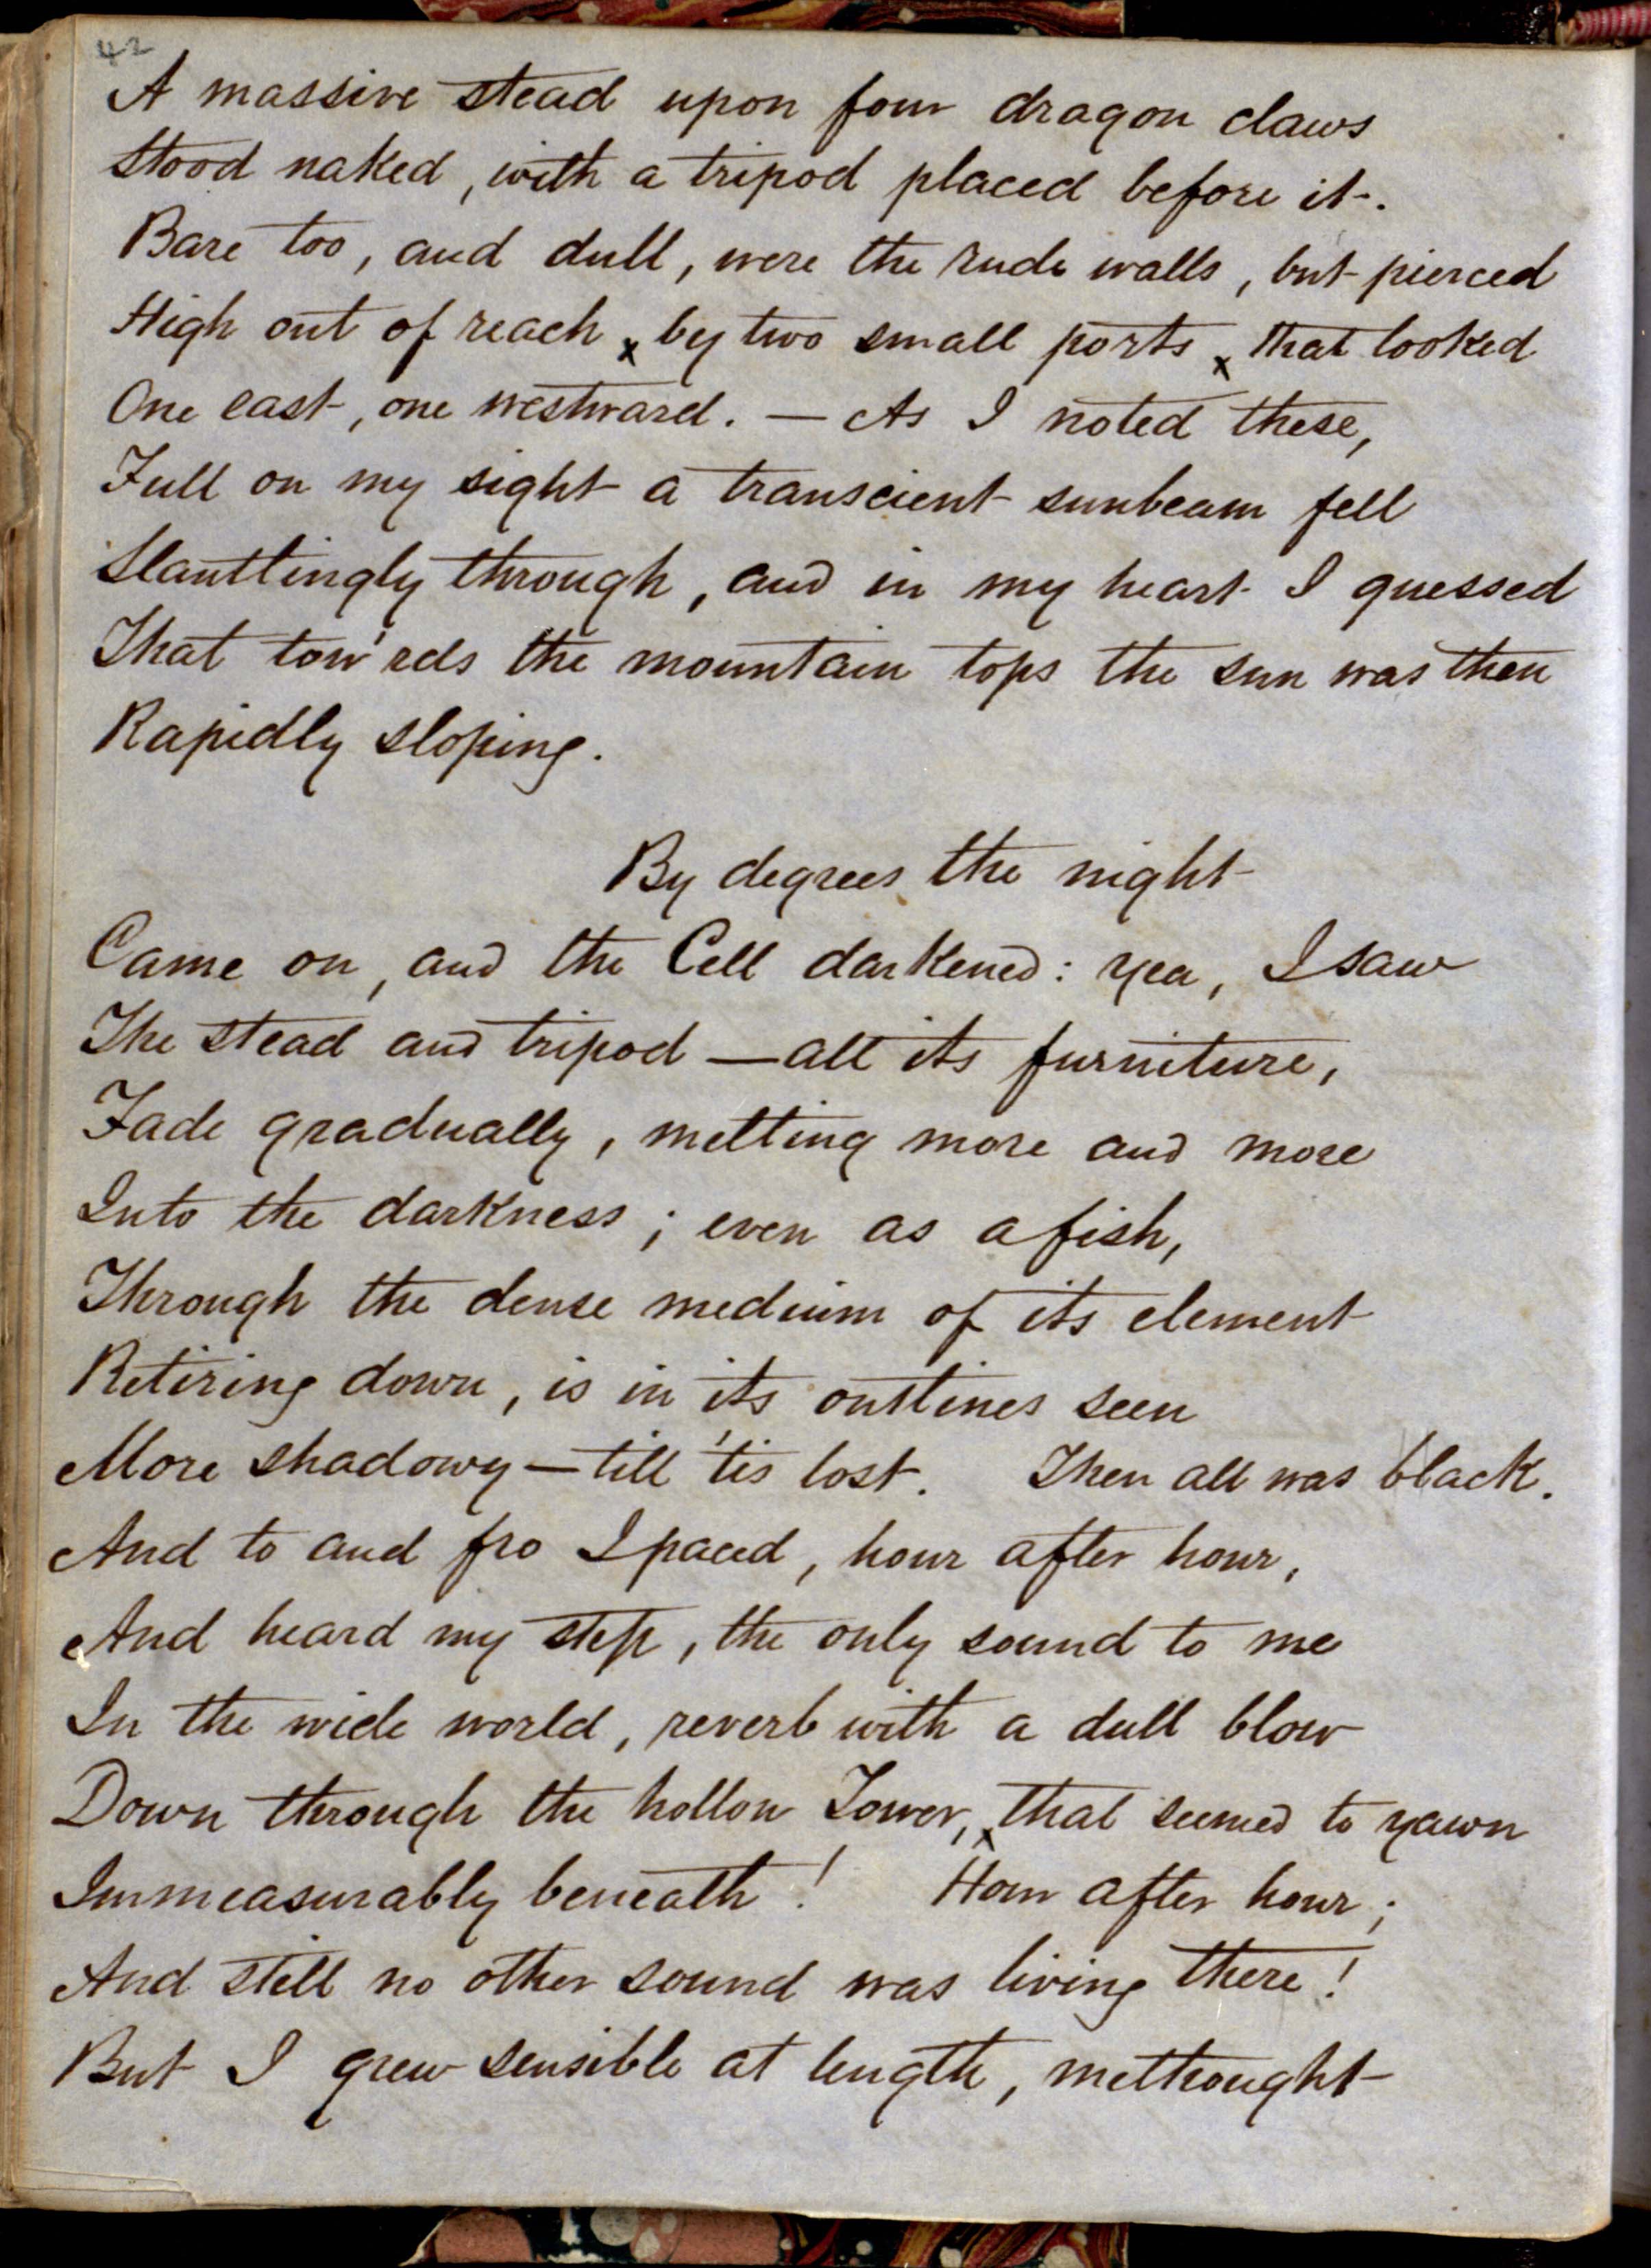 42
A massive stead upon four dragon claws
Stood naked, with a tripod placed before it.
Bare too, and dull, were the rude walls, but pierced
High out of reach x by two small ports x that looked
One east, one westward. — As I noted these,
Full on my sight a transcient sunbeam fell
Slanttingly through, and in my heart I guessed
That tow'rds the mountain tops the sun was then
Rapidly sloping.
By degrees the night
Came on, and the Cell darkened: yea, I saw
The stead and tripod — all its furniture,
Fade gradually, melting more and more
Into the darkness; even as a fish,
Through the dense medium of its element
Retiring down, is in its outlines seen
More shadowy — till 'tis lost. Then all was black.
And to and fro I paced, hour after hour,
And heard my step, the only sound to me
In the wide world, reverb with a dull blow
Down through the hollow Tower, x that seemed to yawn
Immeasurably beneath! Hour after hour;
And still no other sound was living there!
But I grew sensible at length, methought